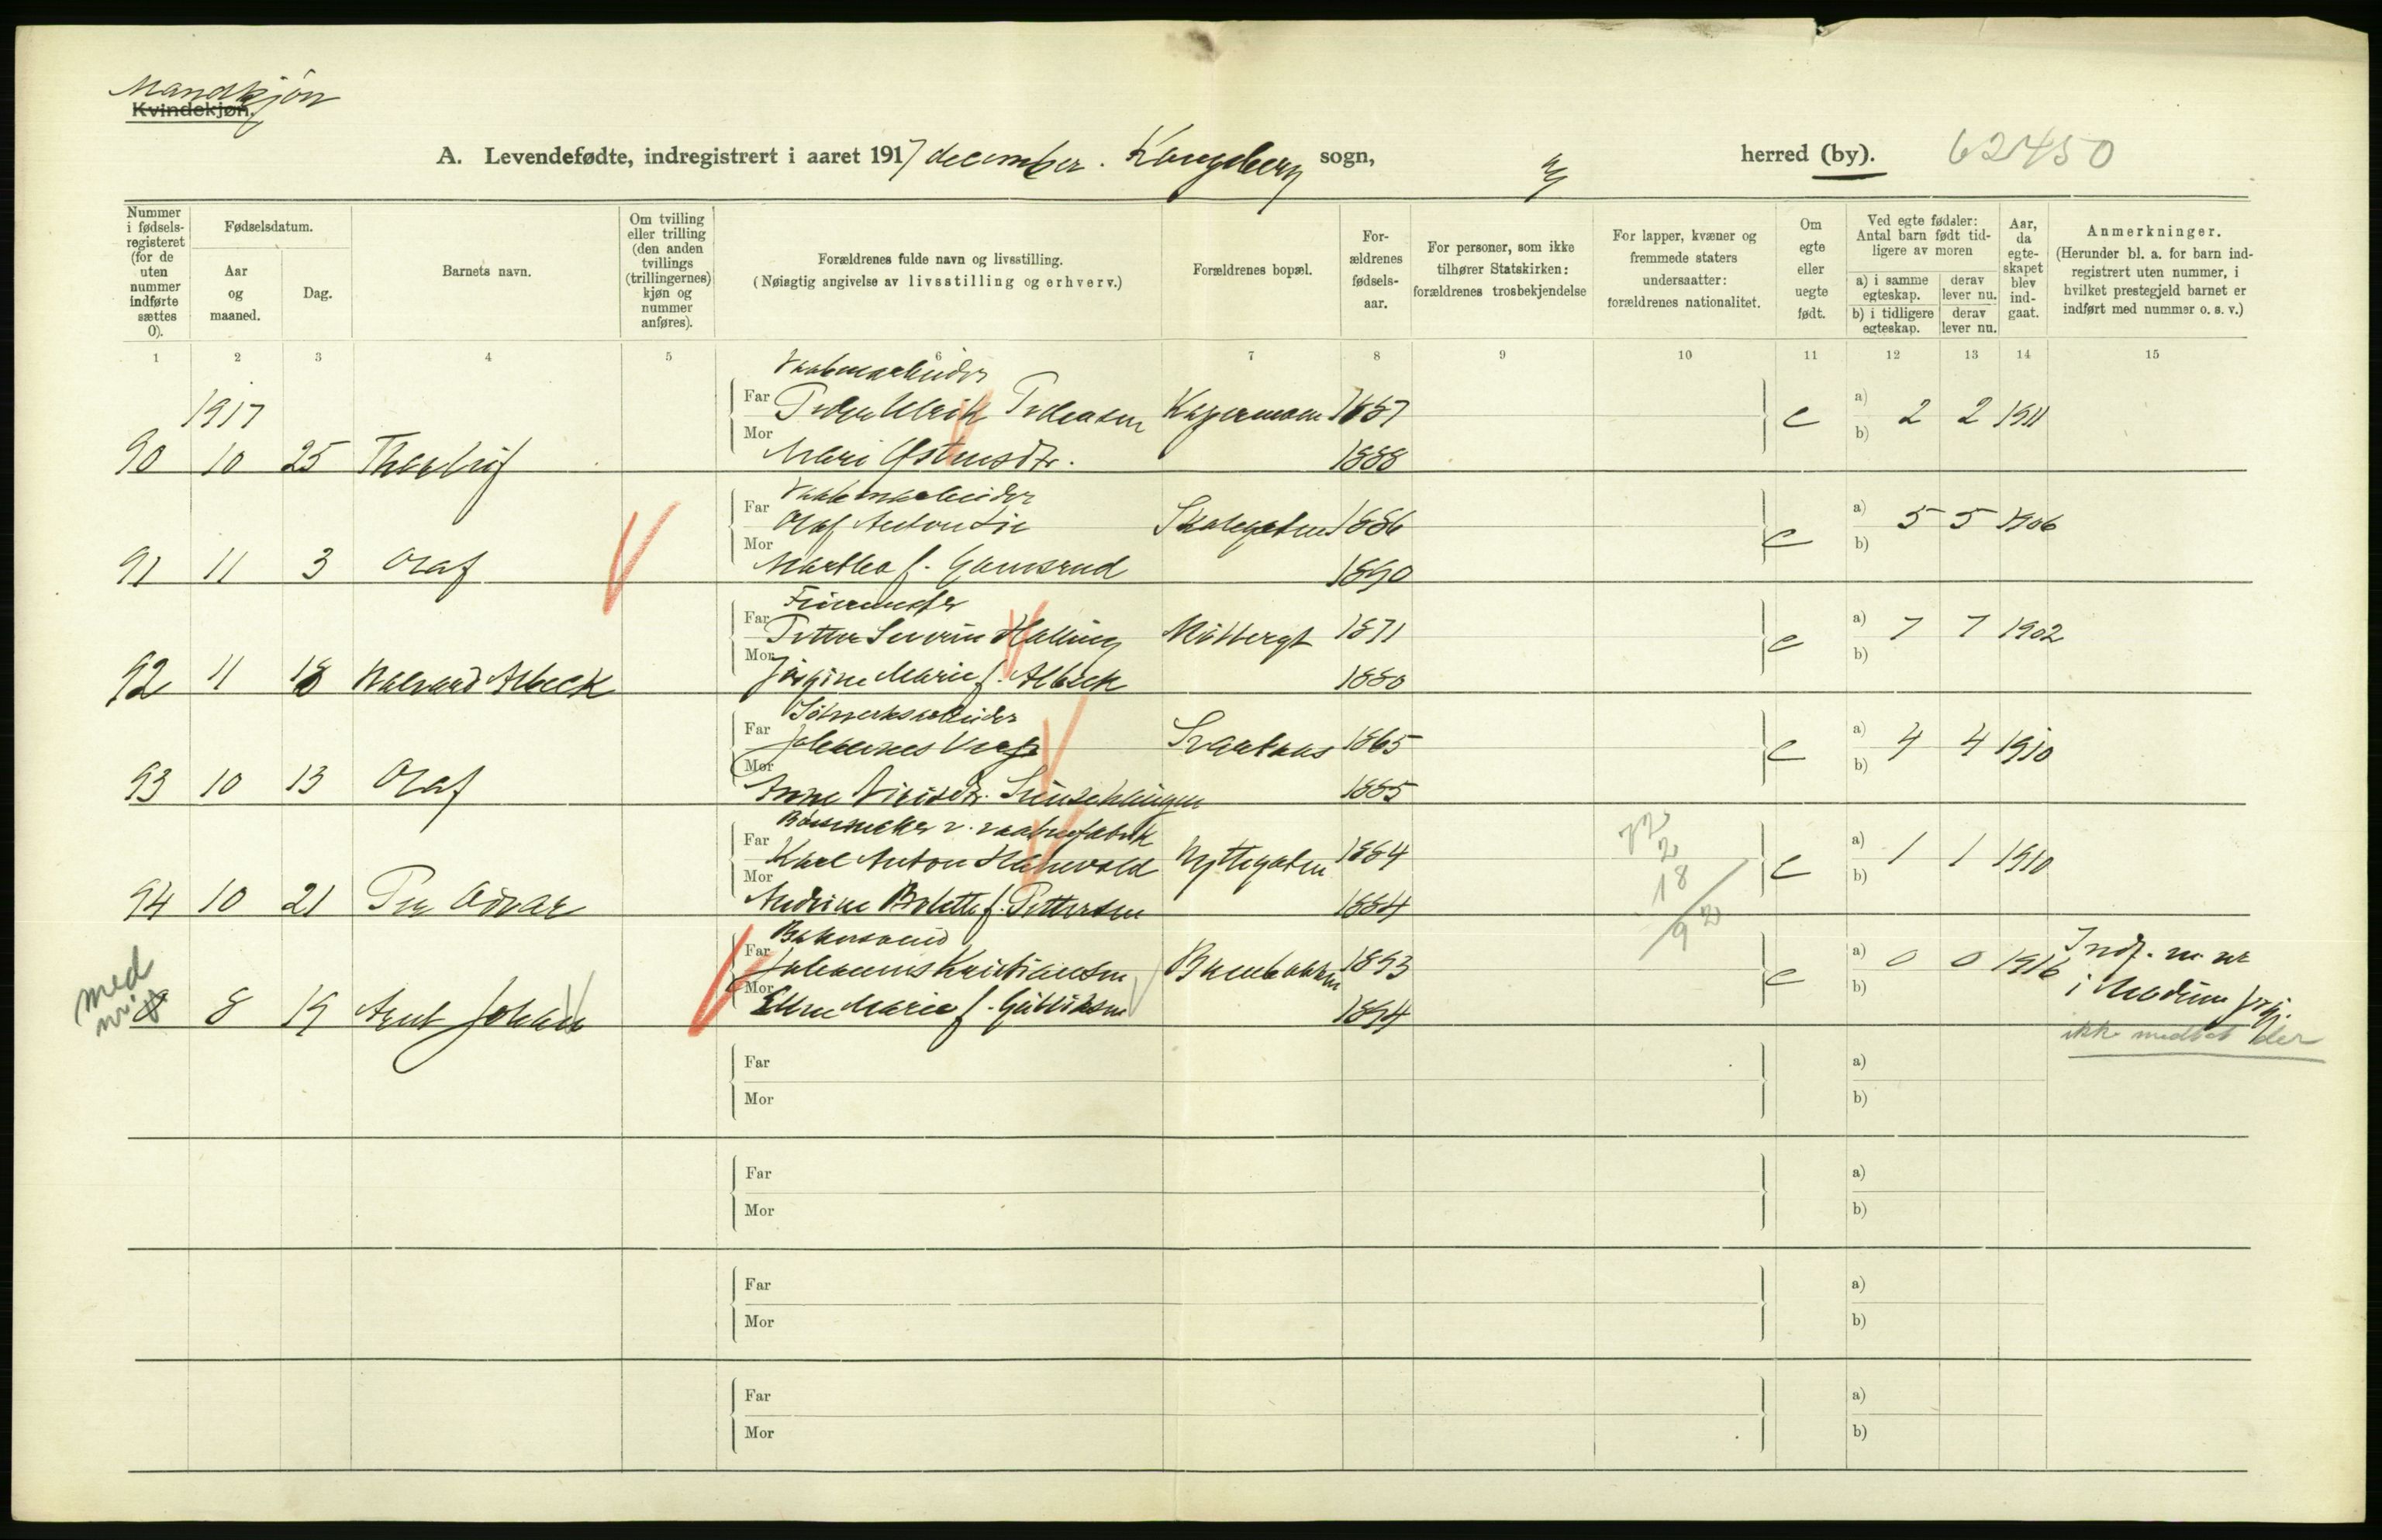 Mandkjøn
Kvindekjøn.
A. Levendefødte, indregistrert i aaret 1917 december. Kongsberg sogn, herred (by). 62450
Nummer i fødselsregisteret (for de uten nummer indførte sættes 0).
Fødselsdatum.
Aar og maaned.
Dag.
Barnets navn.
Om tvilling eller trilling (den anden tvillings (trillingernes) kjøn og nummer anføres).
Forældrenes fulde navn og livsstilling.
(Nøiagtig angivelse av livsstilling og erhverv.)
Forældrenes bopæl.
Forældrenes fødselsaar.
For personer, som ikke tilhører Statskirken: forældrenes trosbekjendelse
For lapper, kvæner og fremmede staters undersaatter: forældrenes nationalitet.
Om egte eller uegte født.
Ved egte fødsler: Antal barn født tidligere av moren
a) i samme egteskap.
derav lever nu.
b) i tidligere egteskap.
derav lever nu.
Aar, da egteskapet blev indgaat.
Anmerkninger.
(Herunder bl. a. for barn indregistrert uten nummer, i hvilket prestegjeld barnet er indført med nummer o. s. v.)
1 2 3 4 5 6 7 8 9 10 11 12 13 14 15
1917
Vaabenarbeider
Far Peder Ulrik Pedersen 1887 e a) 2 2 1911
Mor b)
90 10 25 Mari 1888
Vaabenarbeider
Far Olaf Anton Lie Skolegaten 1886 e a) 5 5 1906
Mor b)
91 11 3 Olaf Martha f. Gamsrud 1890
Far Petter Severin Halling 1871 e a) 7 7 1902
Mor b)
92 11 18 Halvard Albeck Jørgine Marie f. Albeck 1880
Sølverksarbeider
Far Johannes 1865 e a) 4 4 1910
Mor b)
93 10 13 Olaf Anne 1885
Bøssemaker v. vaabenfabrik
Far Karl Anton Nyttegaten 1884 72 2 18 92 e a) 1 1 1910
Mor b)
94 10 21 Per Odvar Andrine Bolette f. Pettersen 1884
Bakersvend
Far Johannes Kristiansen 1893 e a) 0 0 1916 Indf. m. nr
Mor b) i Modum prgj.
med 0 8 19 Arnt Johan Ellen Marie f. 1894
ikke medtat der
Far a)
Mor b)
Far a)
Mor b)
Far a)
Mor b)
Far a)
Mor b)